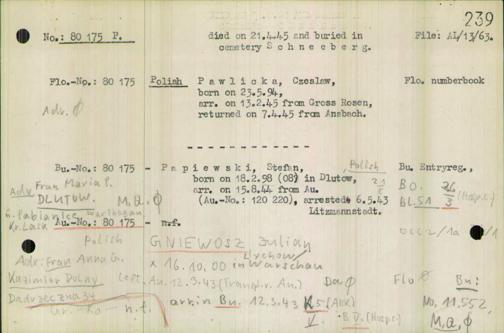 239
No.: 80 175 P.
died on 21.4.45 and buried in
cemetery Schneeberg.
File: AL/13/63.
Flo.-No.: 80 175
Polish
Pawlicka, Czeslaw,
born on 23.5.94,
arr. on 13.2.45 from Gross Rosen,
returned on 7.4.45 from Ansbach.
Flo. numberbook
Adr. Ø
Bu.-No.: 80 175 - Papiewski, Stefan,
Polish
born on 18.2.98 (08) in Dlutow,
arr. on 15.8.44 from Au.
(Au.-No.: 120 220), arrested 6.5.43
Litzmannstadt.
Bu. Entryreg.,
BO.
Bl. 5A
3
Adr. Frau Maria P.
DLUTOW.
M.a. Ø
Kr. Lask
Au.-No.: 80 175 - nrf.
Polish
GNIEWOSZ Julian
x 16.10.00 in Warschau
Adr: Frau Anna G.
Kazimier Dolny
Au. 12.3.43 (Transp. v. Au.)
Flo Ø
Bu:
n.f.
arr. in Bu. 12.3.43
No. 11.552.
M.a. Ø